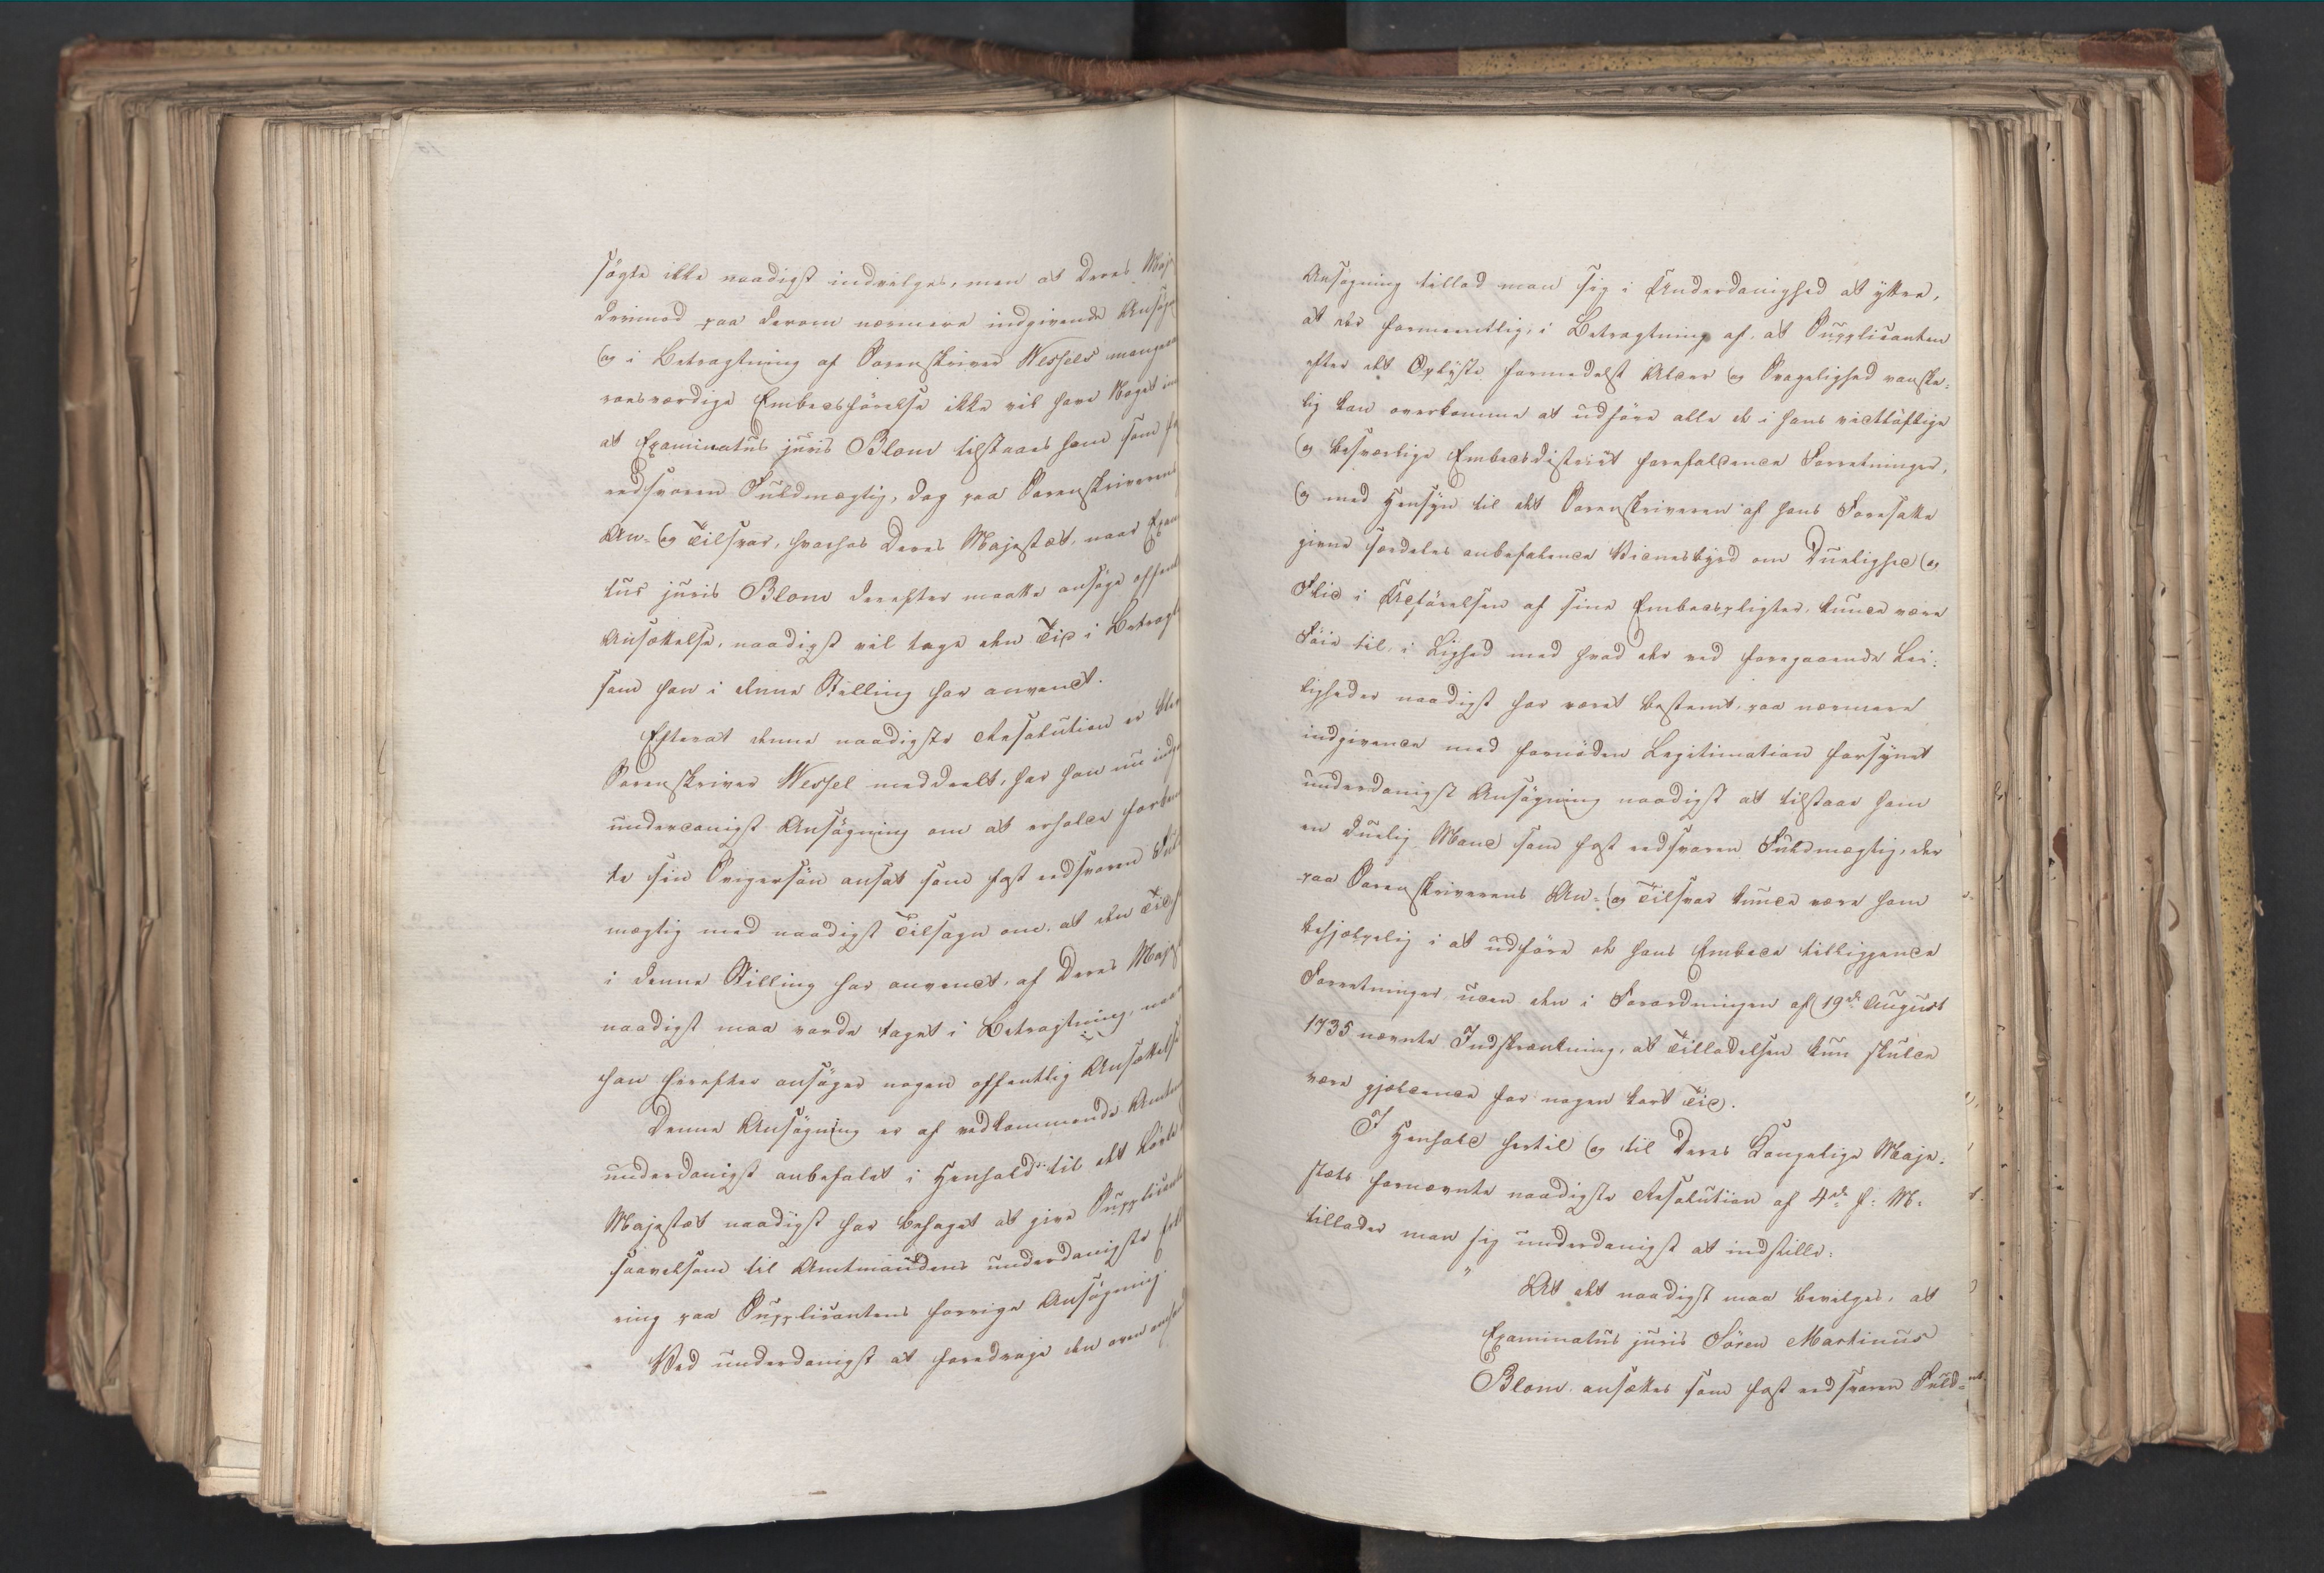 søgte ikke naadigst indvilges, men at Deres Maj
derimod paa derom nærmere indgivende Ansøg
og i Betragtning af Sorenskriver Wessels mange
roesværdige Embedsførelse ikke vil have Noget im
at Examinatus juris Blom tilstaaes ham som f
eedsvoren Fuldmægtig, dog paa Sorenskriverens
An- og Tilsvar, hvorhos Deres Majestæt, naar Exam
tus juris Blom derefter maatte ansøge offent
Ansættelse, naadigst vil tage den Tid i Betragt
som han i denne Stilling har anvendt.
Efterat denne naadigste Resolution er blev
Sorenskriver Wessel meddeelt, har han nu indg
underdanigst Ansøgning om at erholde forben
te sin Svigersøn ansat som fast eedsvoren Ful
mægtig med naadigst Tilsagn om, at den Tid h
i denne Stilling har anvendt, af Deres Majest
naadigst maa vorde taget i Betragtning, naar
han herefter ansøger nogen offentlig Ansættelse
Denne Ansøgning er af vedkommende Amtm
underdanigst anbefalet i Henhold til det Løfte
Majestæt naadigst har behaget at give Supplicante
saavelsom til Amtmandens underdanigste Erkl
ring paa Supplicantens forrige Ansøgning.
Ved underdanigst at foredrage den oven anfør
Ansøgning tillod man sig i Underdanighed at yttre,
at der formeentlig, i Betragtning af, at Supplicanten
efter det Oplyste formedelst Alder og Svagelighed vanske-
lig kan overkomme at udføre alle de i hans vidtløftige
og besværlige Embedsdistrict forefaldende Forretninger,
og med Hensyn til det Sorenskriveren af hans Foresatte
givne særdeles anbefalende Vidnesbyrd om Duelighed og
Flid i Udførelsen af sine Embedspligter, kunde være
Føie til, i Lighed med hvad der ved foregaaende Lei-
ligheder naadigst har været bestemt, paa nærmere
indgivende med fornøden Legitimation forsynet
underdanigst Ansøgning naadigst at tilstaae ham
en duelig Mand som fast eedsvoren Fuldmægtig, der
paa Sorenskriverens An- og Tilsvar kunde være ham
behjælpelig i at udføre de hans Embede tilliggende
Forretninger, uden den i Forordningen af 19de August
1735 nævnte Indskrænkning, at Tilladelsen kun skulde
være gjældende for nogen kort Tid.
I Henhold hertil og til Deres Kongelige Maje-
stæts fornævnte naadigste Resolution af 4de f. M.
tillader man sig underdanigst at indstille:
" At det naadigst maa bevilges, at
Examinatus juris Søren Martinus
Blom ansættes som fast eedsvoren Fuld-